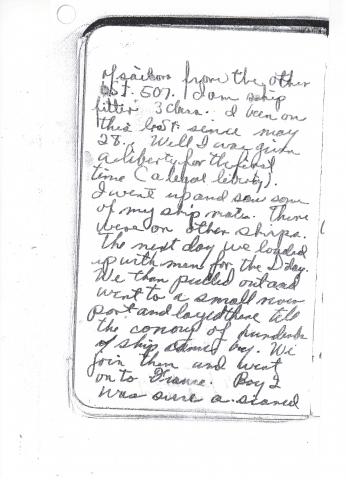 of sailors from the other
LST. 507. I am ship
fitter 3 class. I been on
this LST sence may
28. Well I was given
a liberty for the first
time (a legal liberty).
I went up and saw some
of my ship mates. There
were on other ships.
The next day we loaded
up with men for the D day.
We then pulled out and
went to a small river
port and layed there till
the convoy of hundreds
of ship came by. We
join them and went
on to France. Boy I
was sure a scared